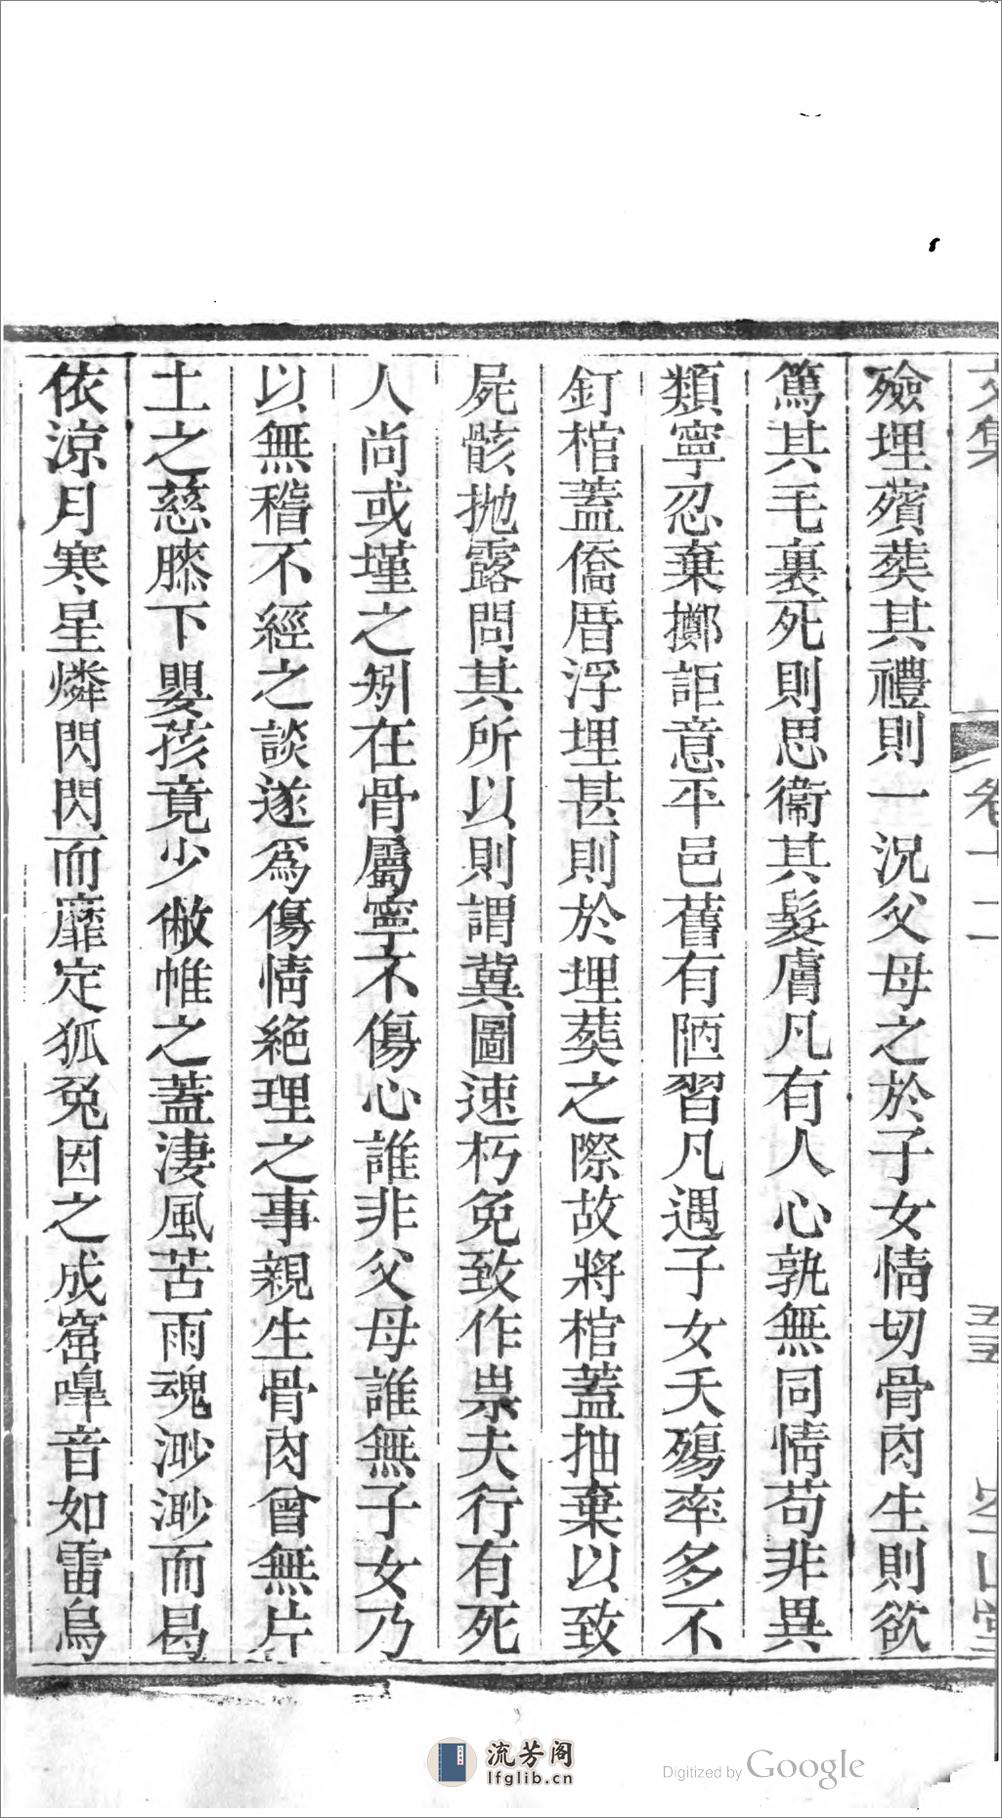 殮埋殯葬其禮則一況父母之於子女情切骨肉生則欲
篤其毛裏死則思衞其髮膚凡有人心孰無同情苟非異
類寧忍棄擲詎意平邑舊有陋習凡遇子女夭殤率多不
釘棺蓋僑厝浮埋甚則於埋葬之際故將棺蓋抽棄以致
屍骸拋露問其所以則謂冀圖速朽免致作祟夫行有死
人尚或墐之矧在骨屬寧不傷心誰非父母誰無子女乃
以無稽不經之談遂爲傷情絕理之事親生骨肉曾無片
土之慈膝下嬰孩竟少敝帷之蓋淒風苦雨魂渺渺而曷
依涼月寒星燐閃閃而靡定狐兔因之成窟嘷音如雷烏
文集
卷十二
五五
山堂
流芳阁
lfglib.cn
Digitized by Google